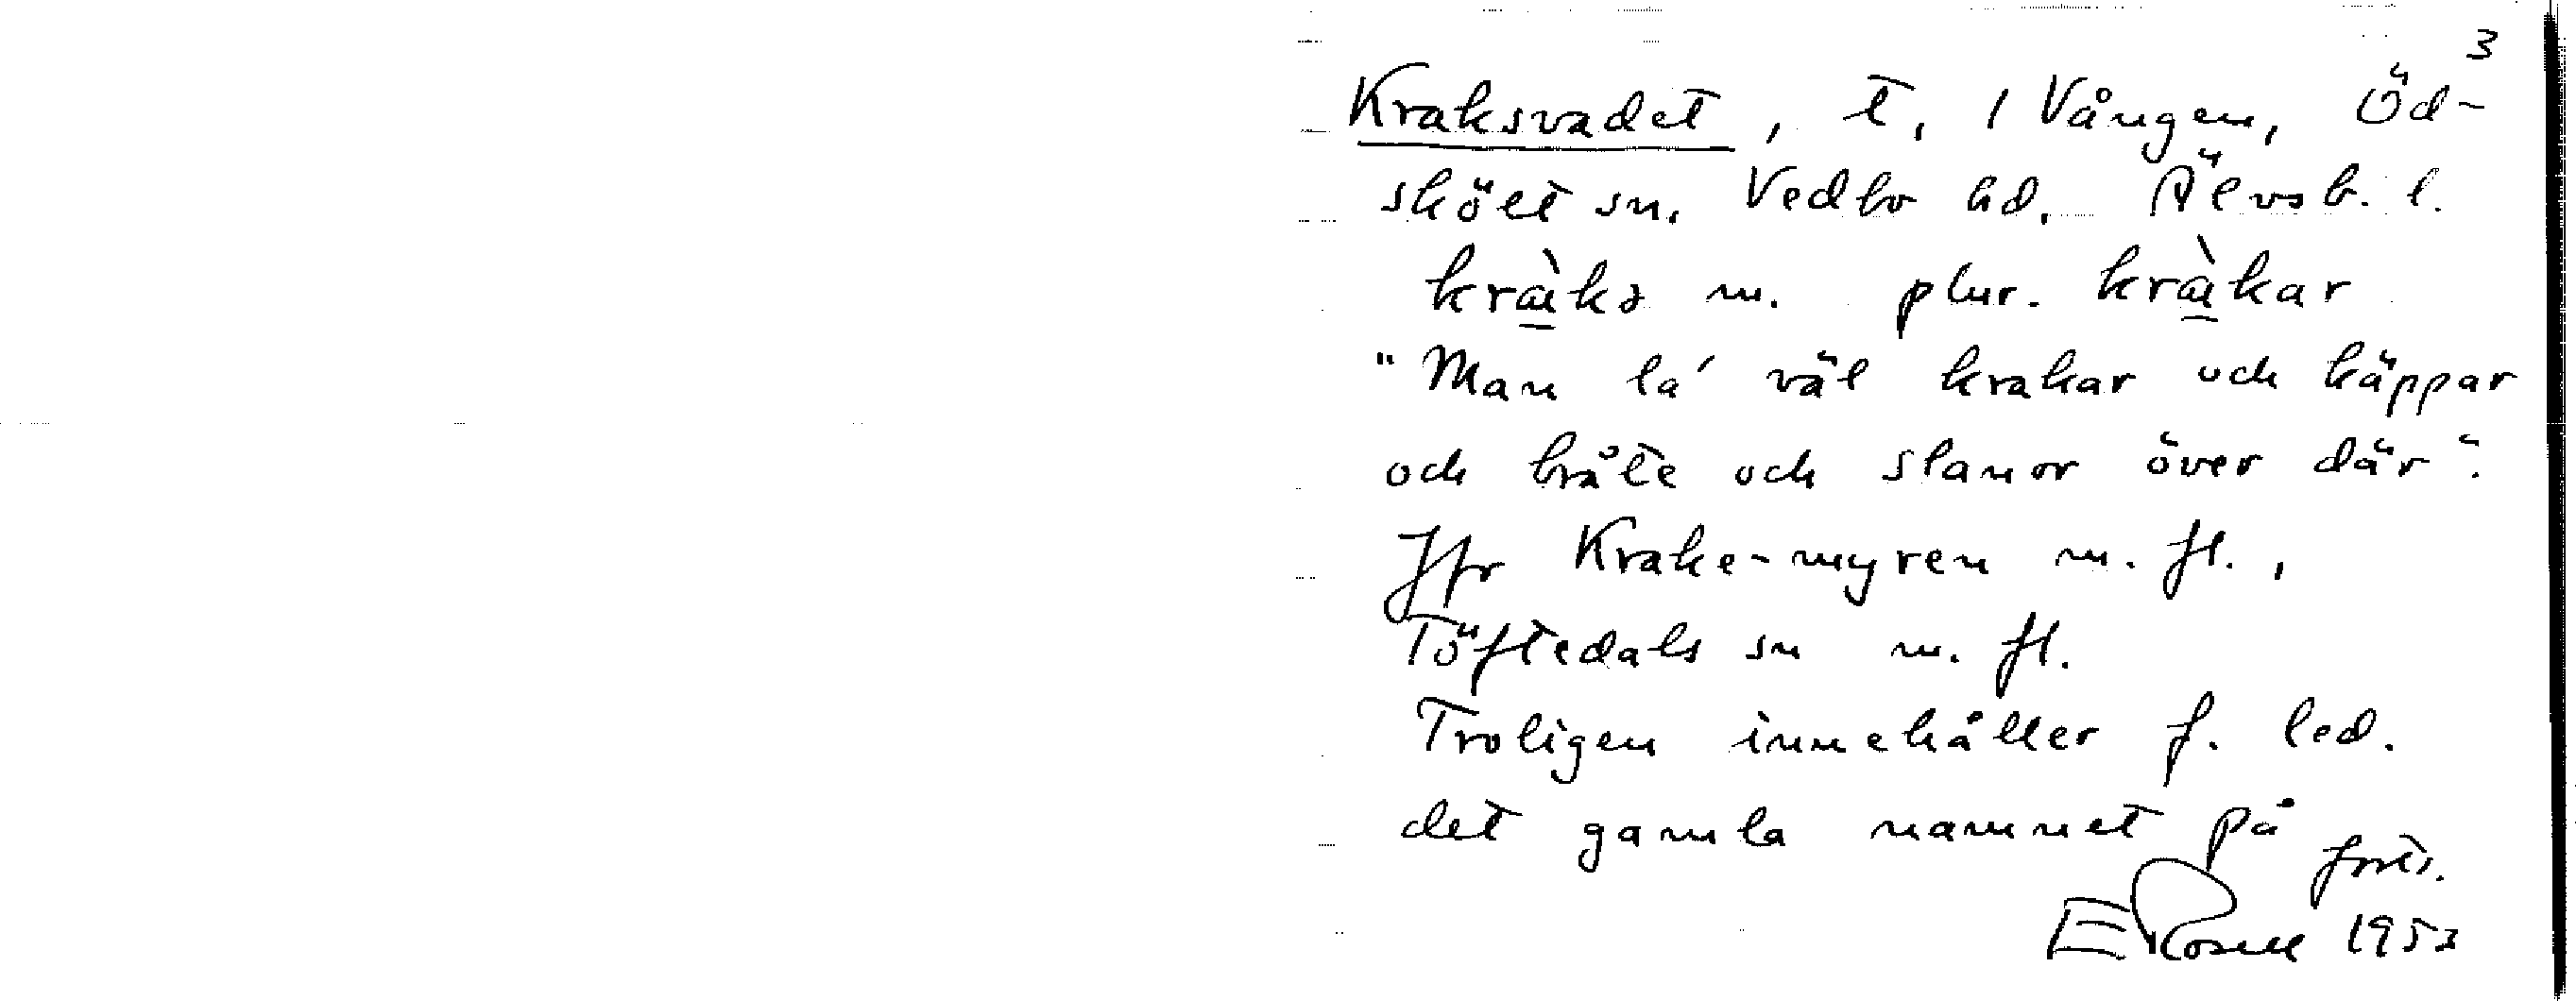 3
Kraksvadet, t, 1 Vången, Öd-
skölt sn. Vedbo hd. Älvsb. l.
kràkə m. plur. kràkar
"Man la' väl krakar och käppar
och bråte och slanor över där".
Jfr Krake-myren m. fl.,
Töftedals sn m. fl.
Troligen innehåller f. led.
det gamla namnet på
forts.
E Rosell 1953